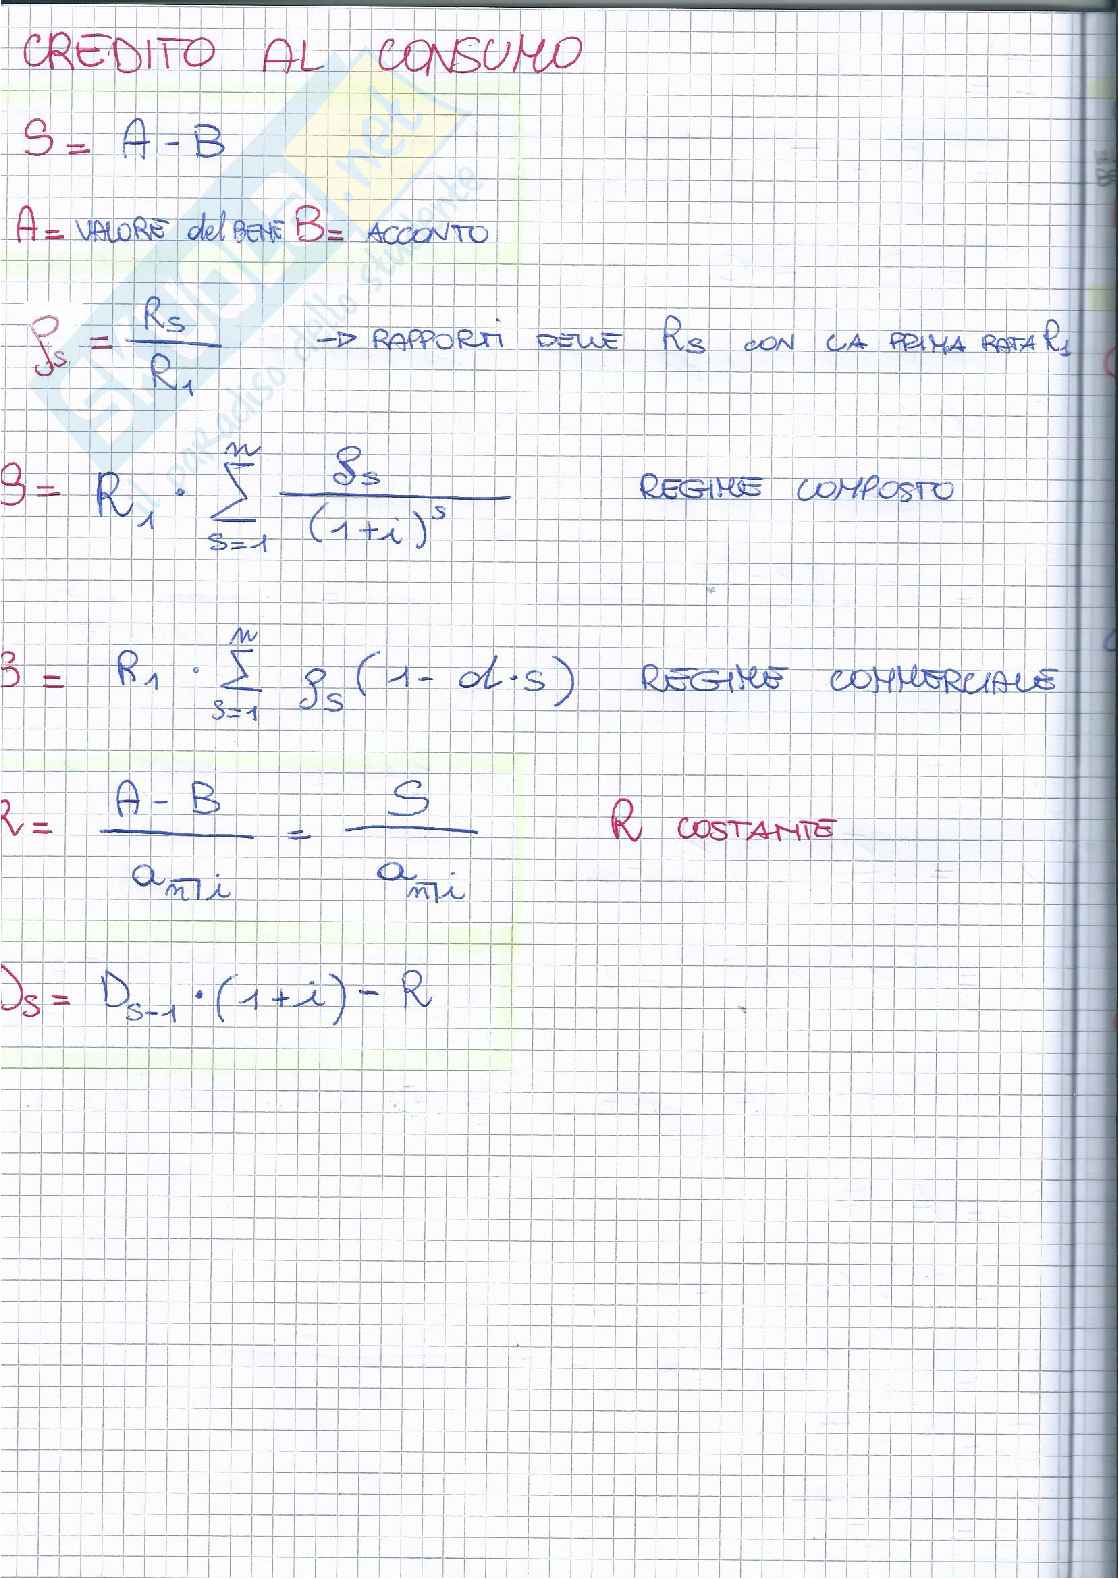 CREDITO AL CONSUMO
S = A - B
A = VALORE del BENE B = ACCONTO
ρs = Rs / R1 → RAPPORTI DELLE Rs CON LA PRIMA RATA R1
S = R1 · Σ(s=1, n) ρs / (1+i)^s REGIME COMPOSTO
S = R1 · Σ(s=1, n) ρs (1 - d·s) REGIME COMMERCIALE
R = A - B / a n̅| i = S / a n̅| i R COSTANTE
Ds = Ds-1 · (1+i) - R
SKUOLA.net
il paradiso dello studente